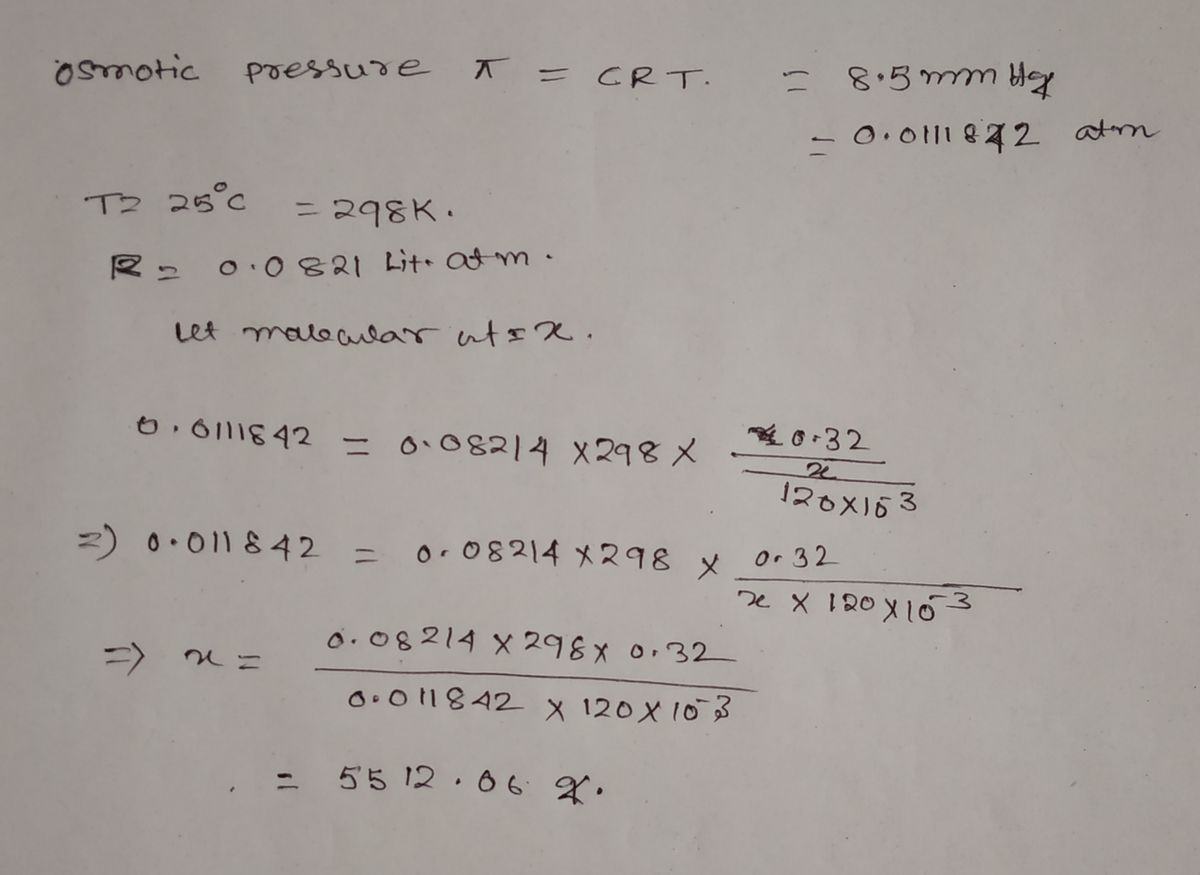 osmotic pressure π = CRT. = 8.5 mm Hg
= 0.0111842 atm
T= 25°C = 298K.
R = 0.0821 Lit. atm.
Let molecular wt = x.
0.0111842 = 0.08214 X298 X 0.32
x
120X10-3
=) 0.011842 = 0.08214 X298 X 0.32
x X 120X10-3
=> x = 0.08214 X 298X 0.32
0.011842 X 120X10-3
= 5512.06 g.